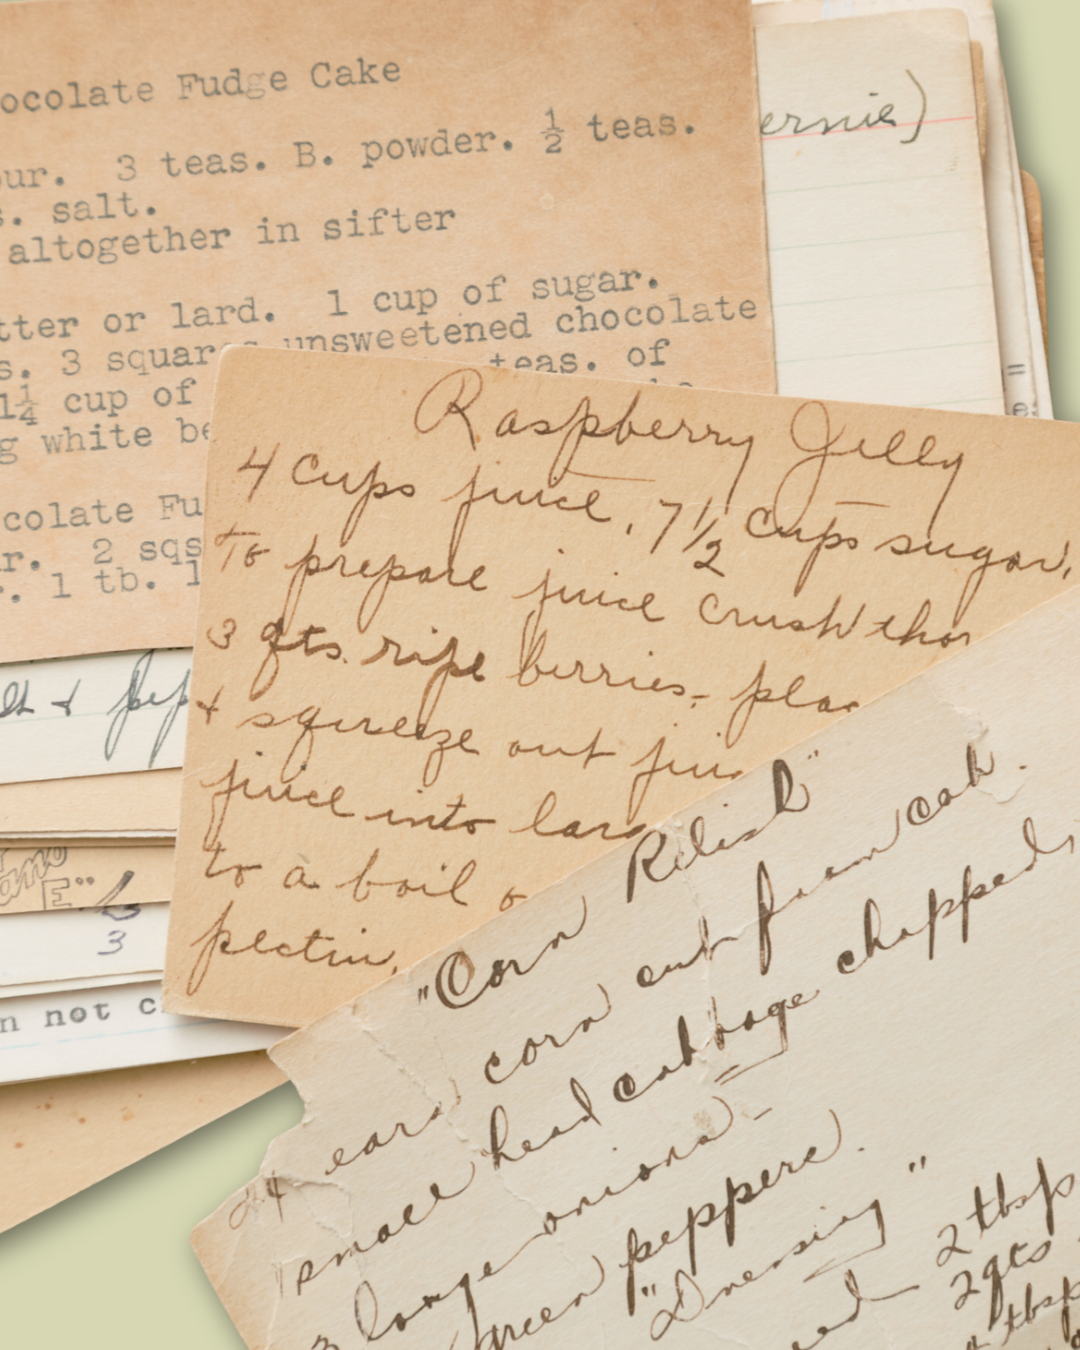 ocolate Fudge Cake
our. 3 teas. B. powder. ½ teas.
s. salt.
altogether in sifter
tter or lard. 1 cup of sugar.
s. 3 squares unsweetened chocolate
1¼ cup of teas. of
g white be
colate Fu
r. 2 sqs
. 1 tb. 1
ernie)
Raspberry Jelly
4 cups juice, 7½ cups sugar,
To prepare juice crush thor
3 qts. ripe berries, plac
+ squeeze out juic
juice into larg
to a boil
pectin.
lt + pep
ano
E"
3
n not c
"Corn Relish"
24 ears corn cut from cob.
1 small head cabbage chopped
3 large onions
green peppers.
"Dressing"
2 tbsp
2 qts
tbsp